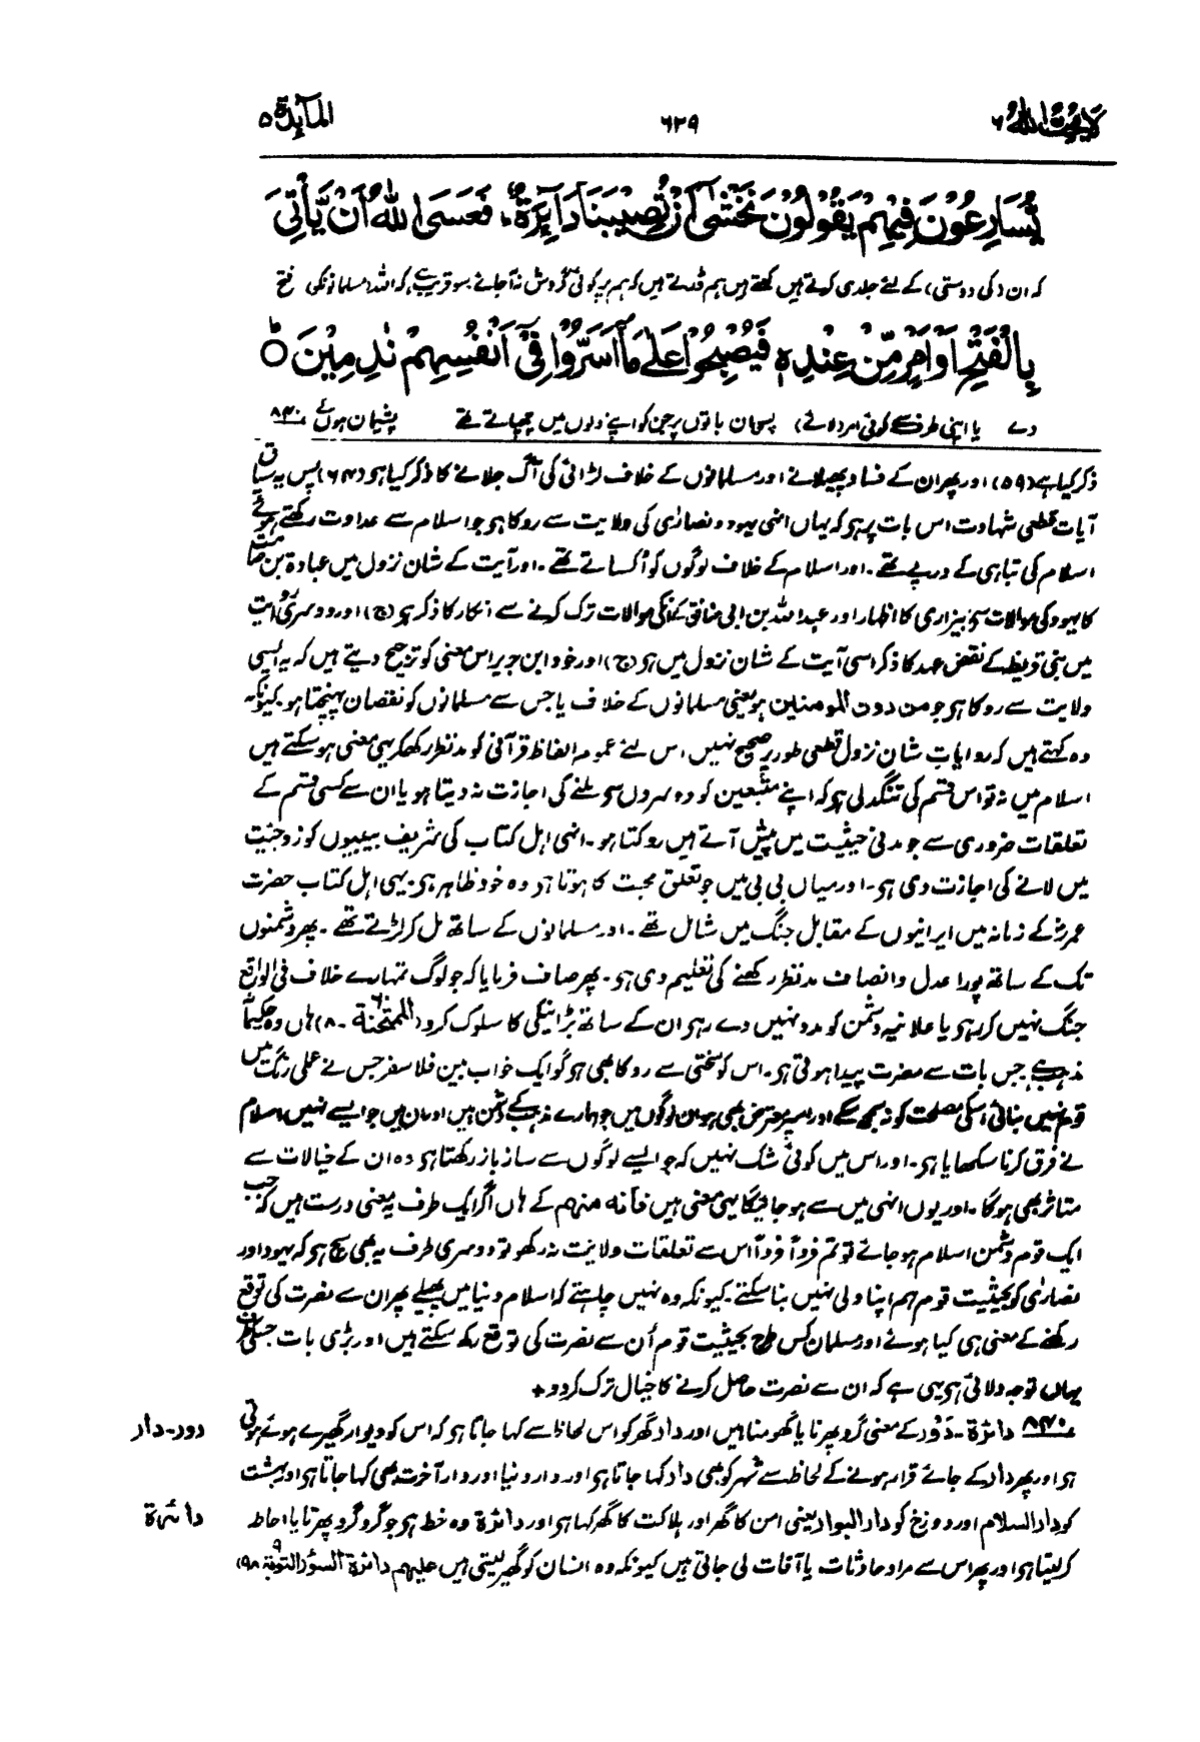 لا یحب اللہ ۶ ۶۲۹ المآئدۃ ۵
یُّسَارِعُوْنَ فِیْهِمْ یَقُوْلُوْنَ نَخْشٰۤى اَنْ تُصِیْبَنَا دَآىٕرَةٌ ؕ فَعَسَى اللّٰهُ اَنْ یَّاْتِیَ
کہ ان (کی دوستی) کے لئے جلدی کرتے ہیں کہتے ہیں ہم ڈرتے ہیں کہ ہم پر کوئی گردش نہ آجائے ۔ سو قریب ہے، کہ اللہ مسلمانوں کی فتح
بِالْفَتْحِ اَوْ اَمْرٍ مِّنْ عِنْدِهٖ فَیُصْبِحُوْا عَلٰى مَاۤ اَسَرُّوْا فِیْۤ اَنْفُسِهِمْ نٰدِمِیْنَ ؕ
دے یا اپنی طرف سے کوئی امر (لائے) پس ان باتوں پر جن کو اپنے دلوں میں چھپاتے تھے پشیمان ہوں گے ۸۴۰
ذکر کیا ہے (۵۹) اور پھر ان کے فساد پھیلانے اور مسلمانوں کے خلاف لڑائی کی آگ جلانے کا ذکر کیا ہو (۶۴) پس یہ سیاق
آیات قطعی شہادت اس بات پر ہو کہ یہاں انہی یہود و نصاریٰ کی ولایت سے روکا ہو جو اسلام سے عداوت رکھتے ہوئے
اسلام کی تباہی کے درپے تھے۔ اور اسلام کے خلاف لوگوں کو اُکساتے تھے۔ اور آیت کے شان نزول میں عبادۃ بن صامت
کا یہود کی موالات سے بیزاری کا اظہار اور عبداللہ بن ابی منافق کے انکی موالات ترک کرنے سے انکار کا ذکر ہو (ج) اور دوسری روایت
میں بنی قریظہ کے نقض عہد کا ذکر اسی آیت کے شان نزول میں ہو (ج) اور خود ابن جریر اس معنی کو ترجیح دیتے ہیں کہ یہ ایسی
ولایت سے روکا ہو جو من دون المومنین ہو یعنی مسلمانوں کے خلاف یا جس سے مسلمانوں کو نقصان پہنچتا ہو۔ کیونکہ
وہ کہتے ہیں کہ روایات شان نزول قطعی طور پر صحیح نہیں، اس لئے عموم الفاظ قرآنی کو مدنظر رکھکر یہی معنی ہو سکتے ہیں
اسلام میں نہ تو اس قسم کی تنگدلی ہو کہ اپنے متبعین کو دوسروں سے ملنے کی اجازت نہ دیتا ہو یا ان سے کسی قسم کے
تعلقات ضروری سے جو مدنی حیثیت میں پیش آتے ہیں روکتا ہو۔ انہی اہل کتاب کی شریف بیبیوں کو زوجیت
میں لانے کی اجازت دی ہو۔ اور میاں بی بی میں جو تعلق محبت کا ہوتا ہو وہ خود ظاہر ہو۔ یہی اہل کتاب حضرت
عمرؓ کے زمانہ میں ایرانیوں کے مقابل جنگ میں شامل تھے۔ اور مسلمانوں کے ساتھ مل کر لڑتے تھے۔ پھر دشمنوں
تک کے ساتھ پورا عدل و انصاف مدنظر رکھنے کی تعلیم دی ہو۔ پھر صاف فرمایا کہ جو لوگ تمہارے خلاف فی الواقع
جنگ نہیں کر رہے یا علانیہ دشمن کو مدد نہیں دے رہے ان کے ساتھ بڑا نیکی کا سلوک کرو (الممتحنۃ ۶۰۔ ۸) ہاں وہ حکیمانہ
مذہب ہے جس بات سے مضرت پیدا ہوتی ہو۔ اس کو سختی سے روکا بھی ہو گو ایک خواب بین فلاسفر جس نے عملی رنگ میں
قوم نہیں بنائی اسکی مصلحت کو نہ سمجھ سکے اور اسپر معترض بھی ہو ان لوگوں میں جو ہمارے مذہب کے دشمن ہیں اور ان میں جو ایسے نہیں اسلام
نے فرق کرنا سکھایا ہو۔ اور اس میں کوئی شک نہیں کہ جو ایسے لوگوں سے ساز باز رکھتا ہو وہ ان کے خیالات سے
متاثر بھی ہوگا۔ اور یوں انہی میں سے ہو جائیگا یہی معنی ہیں فانہ منہم کے ہاں اگر ایک طرف یہ معنی درست ہیں کہ جب
ایک قوم دشمن اسلام ہو جائے تو تم فرداً فرداً اس سے تعلقات ولایت نہ رکھو تو دوسری طرف یہ بھی سچ ہو کہ یہود اور
نصاریٰ کو بحیثیت قوم ہم اپنا ولی نہیں بنا سکتے۔ کیونکہ وہ نہیں چاہتے کہ اسلام دنیا میں پھیلے پھر ان سے نصرت کی توقع
رکھنے کے معنی ہی کیا ہوئے اور مسلمان کس طرح بحیثیت قوم اُن سے نصرت کی توقع رکھ سکتے ہیں اور بڑی بات جسکی طرف
یہاں توجہ دلائی ہو یہی ہے کہ ان سے نصرت حاصل کرنے کا خیال ترک کردو +
۸۴۰ دائرۃ۔ دَوْر کے معنی گرد پھرنا یا گھومنا ہیں اور دار گھر کو اس لحاظ سے کہا جاتا ہو کہ اس کو دیوار گھیرے ہوئے ہوتی
دور۔ دار
ہو اور پھر دار کے جائے قرار ہونے کے لحاظ سے شہر کو بھی دار کہا جاتا ہو اور دار دنیا اور دار آخرت بھی کہا جاتا ہو اور بہشت
کو دار السلام اور دوزخ کو دار البوار یعنی امن کا گھر اور ہلاکت کا گھر کہا ہو اور دائرۃ وہ خط ہو جو گرد گرد پھرتا یا احاطہ
دائرۃ
کرلیتا ہو اور پھر اس سے مراد حادثات یا آفات لی جاتی ہیں کیونکہ وہ انسان کو گھیر لیتی ہیں علیہم دائرۃ السوء (التوبۃ ۹۔ ۹۸)